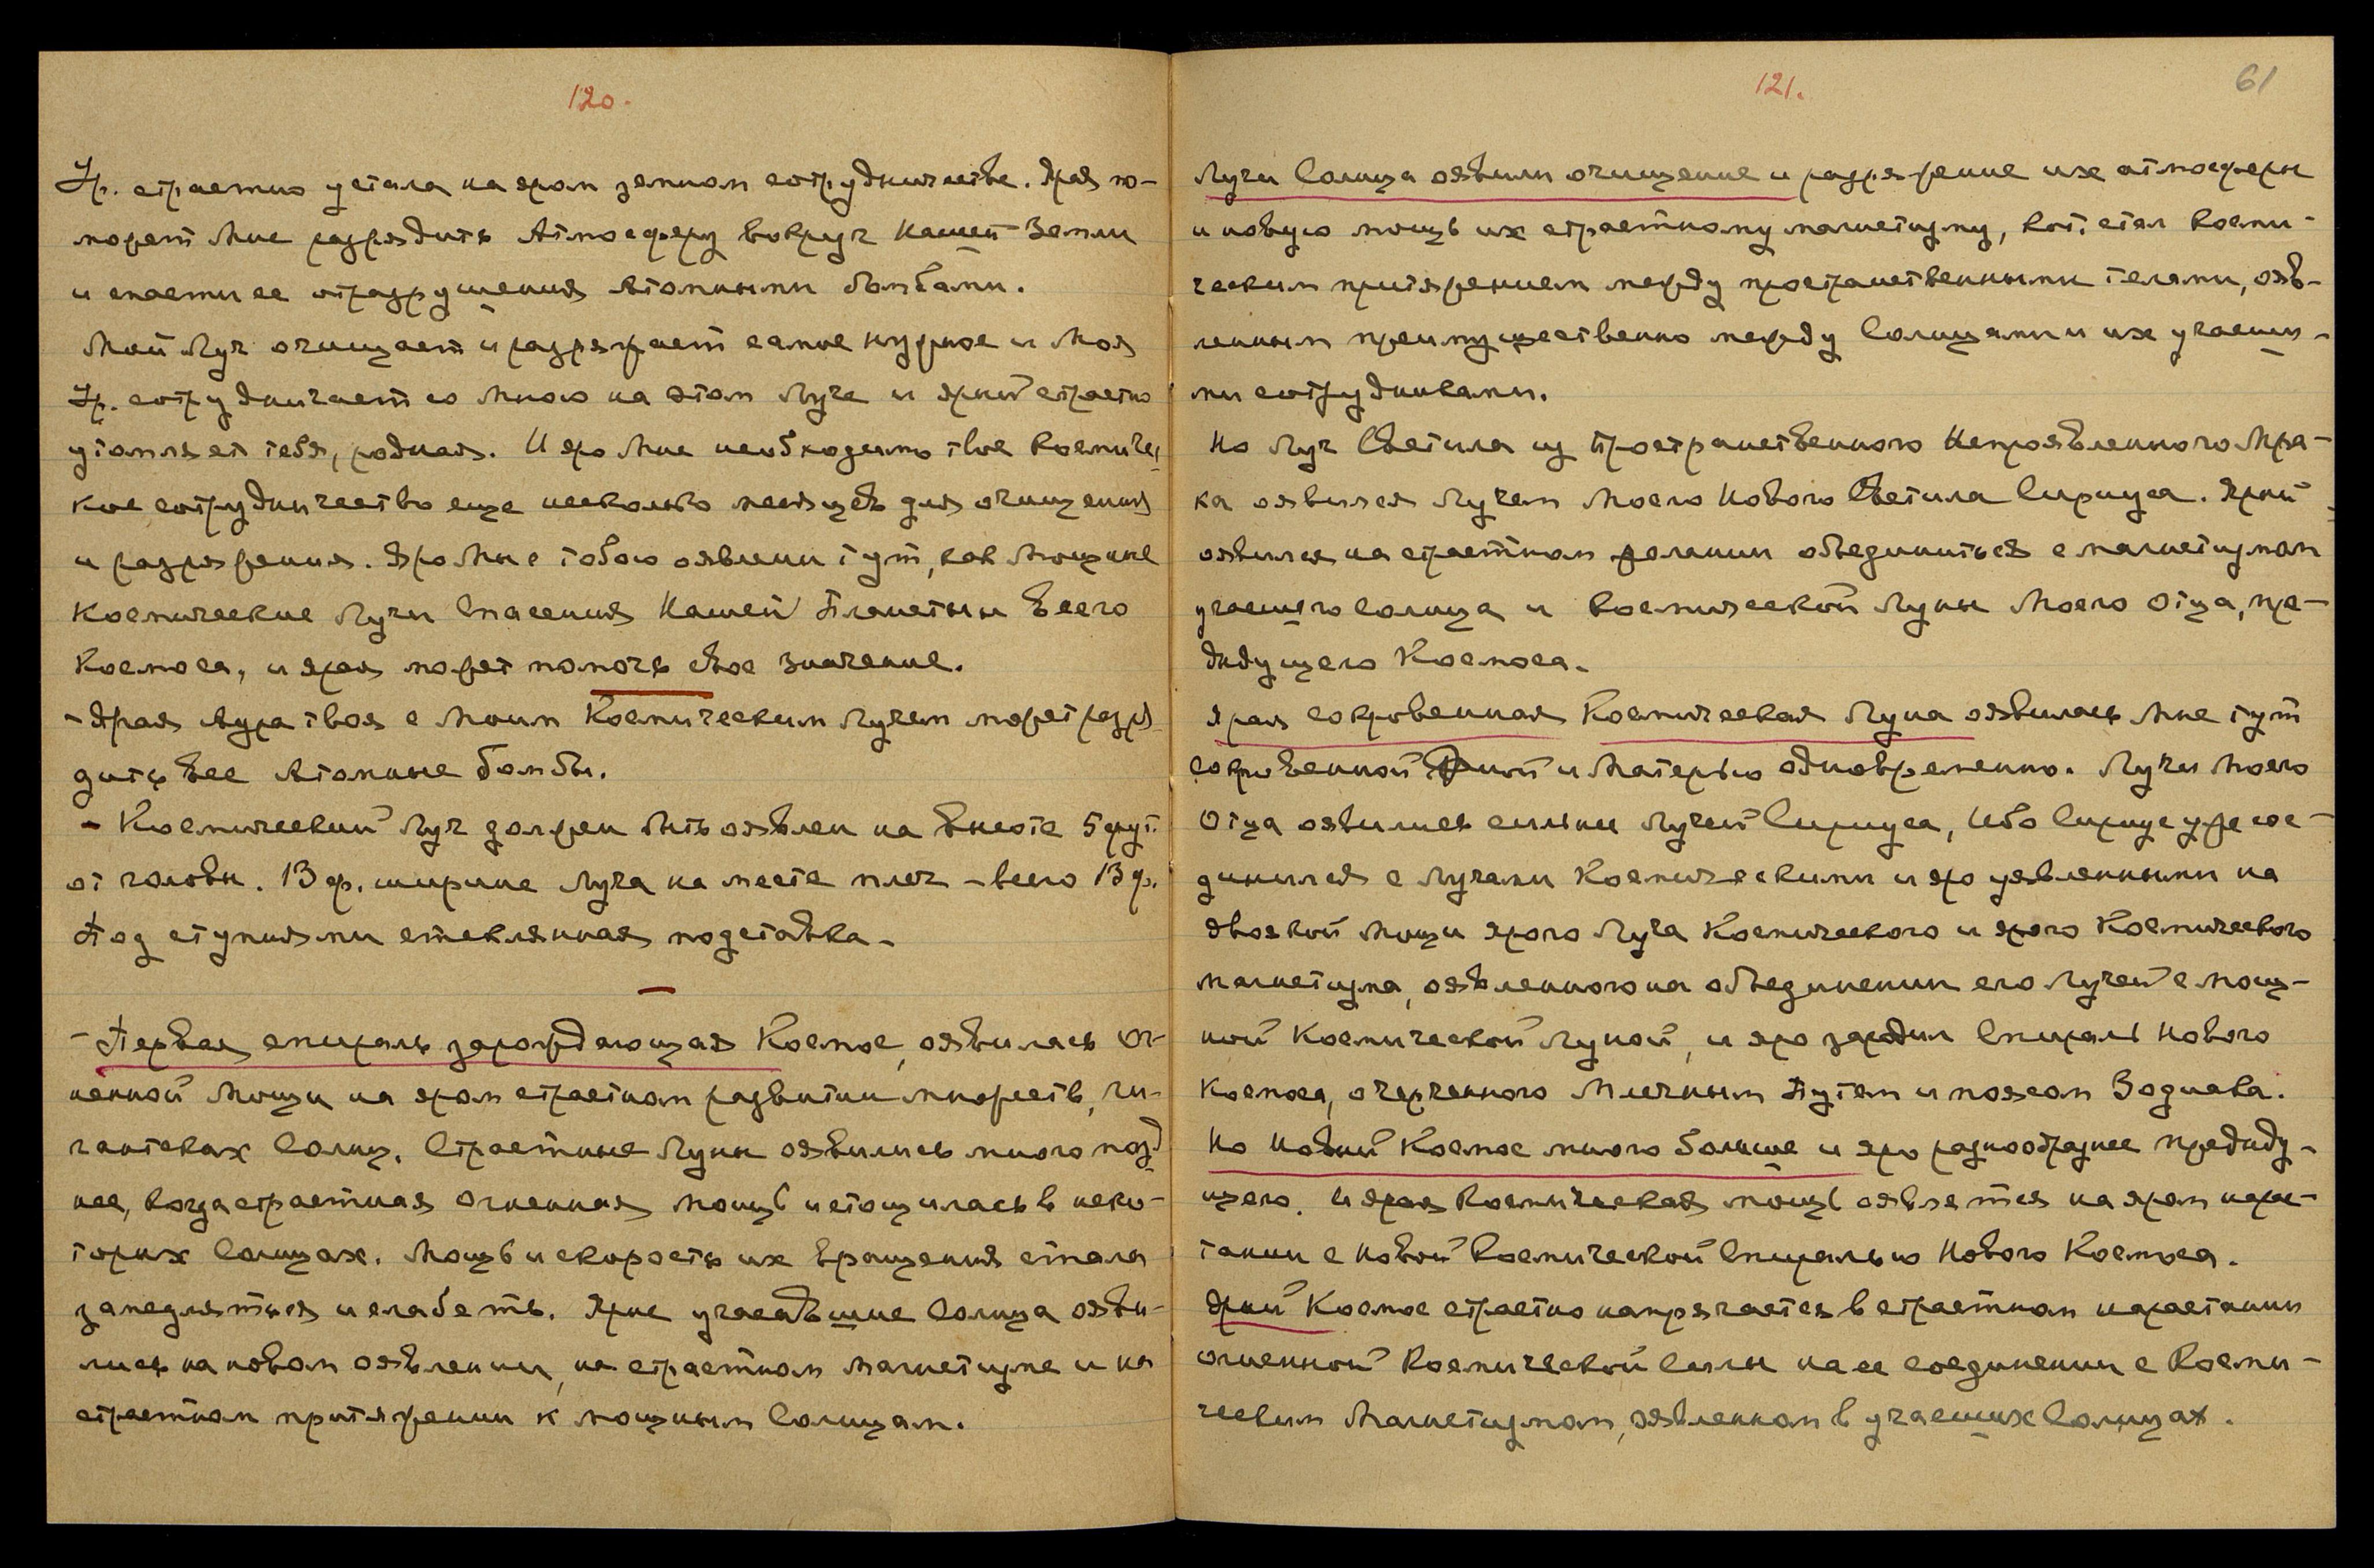 120.
Ур. страстно устала на яром земном сотрудничестве. Ярая по-
может Мне разрядить Атмосферу вокруг Нашей Земли
и спасти ее от разрушения Атомными бомбами.
Мой Луч очищает и разряжает самое нужное и Моя
Ур. сотрудничает со Мною на этом Луче и ярый страстно
утомляет тебя, родная. И яро Мне необходимо твое Космичес-
кое сотрудничество еще несколько месяцев для очищения
и разряжения. Яро Мы с тобою оявлены тут, как Мощные
Космические Лучи Спасения Нашей Планеты и Всего
Космоса, и ярая может помочь свое значение.
- Ярая Аура твоя с Моим Космическим Лучем может разря-
дить Все Атомные бомбы.
- Космический Луч должен быть оявлен на Высоте 5 фут.
от головы. 13 ф. ширине Луча на месте плеч - всего 13 ф.
Под ступнями стеклянная подставка -
- Первая спираль зарождающая Космос, оявилась ог-
ненной Мощи на яром страстном развитии множеств, ги-
гантских Солнц. Страстные Луны оявились много позд-
нее, когда страстная огненная мощь истощилась в неко-
торых Солнцах. Мощь и скорость их вращения стала
замедляться и слабеть. Ярые угасавшие Солнца ояви-
лись на новом оявлении, на страстном магнетизме и на
страстном притяжении к мощным Солнцам.
121.
61
Лучи Солнца оявили очищение и разряжение их атмосферы
и новую мощь их страстному магнетизму, кот. стал косми-
ческим притяжением между пространственными телами, ояв-
ленным преимущественно между Солнцами и их угасши-
ми сотрудниками.
Но Луч Светила из Пространственного Непроявленного Мра-
ка оявился Лучем Моего Нового Светила Сириуса. Ярый
оявился на страстном желании объединиться с магнетизмом
угасшего Солнца и Космической Луны Моего Отца, пре-
дыдущего Космоса.
Ярая сокровенная Космическая Луна оявилась Мне тут
сокровенной и Матерью одновременно. Лучи Моего
Отца оявились сильны Лучей Сириуса, Ибо Сириус уже сое-
динился с Лучами Космическими и яро уявленными на
двоякой мощи ярого Луча Космического и ярого Космического
магнетизма, оявленного на объединении его Лучей с мощ-
ной Космической Луной, и яро зародил Спираль Нового
Космоса, очерченного Млечным Путем и поясом Зодиака.
Но Новый Космос много больше и яро разнообразнее предыду-
щего. И ярая Космическая мощь оявляется на яром нарас-
тании с Новой Космической Спиралью Нового Космоса.
Ярый Космос страстно напрягается в страстном нарастании
огненной Космической Силы на ее соединении с Косми-
ческим Магнетизмом, оявленном в угасших Солнцах.